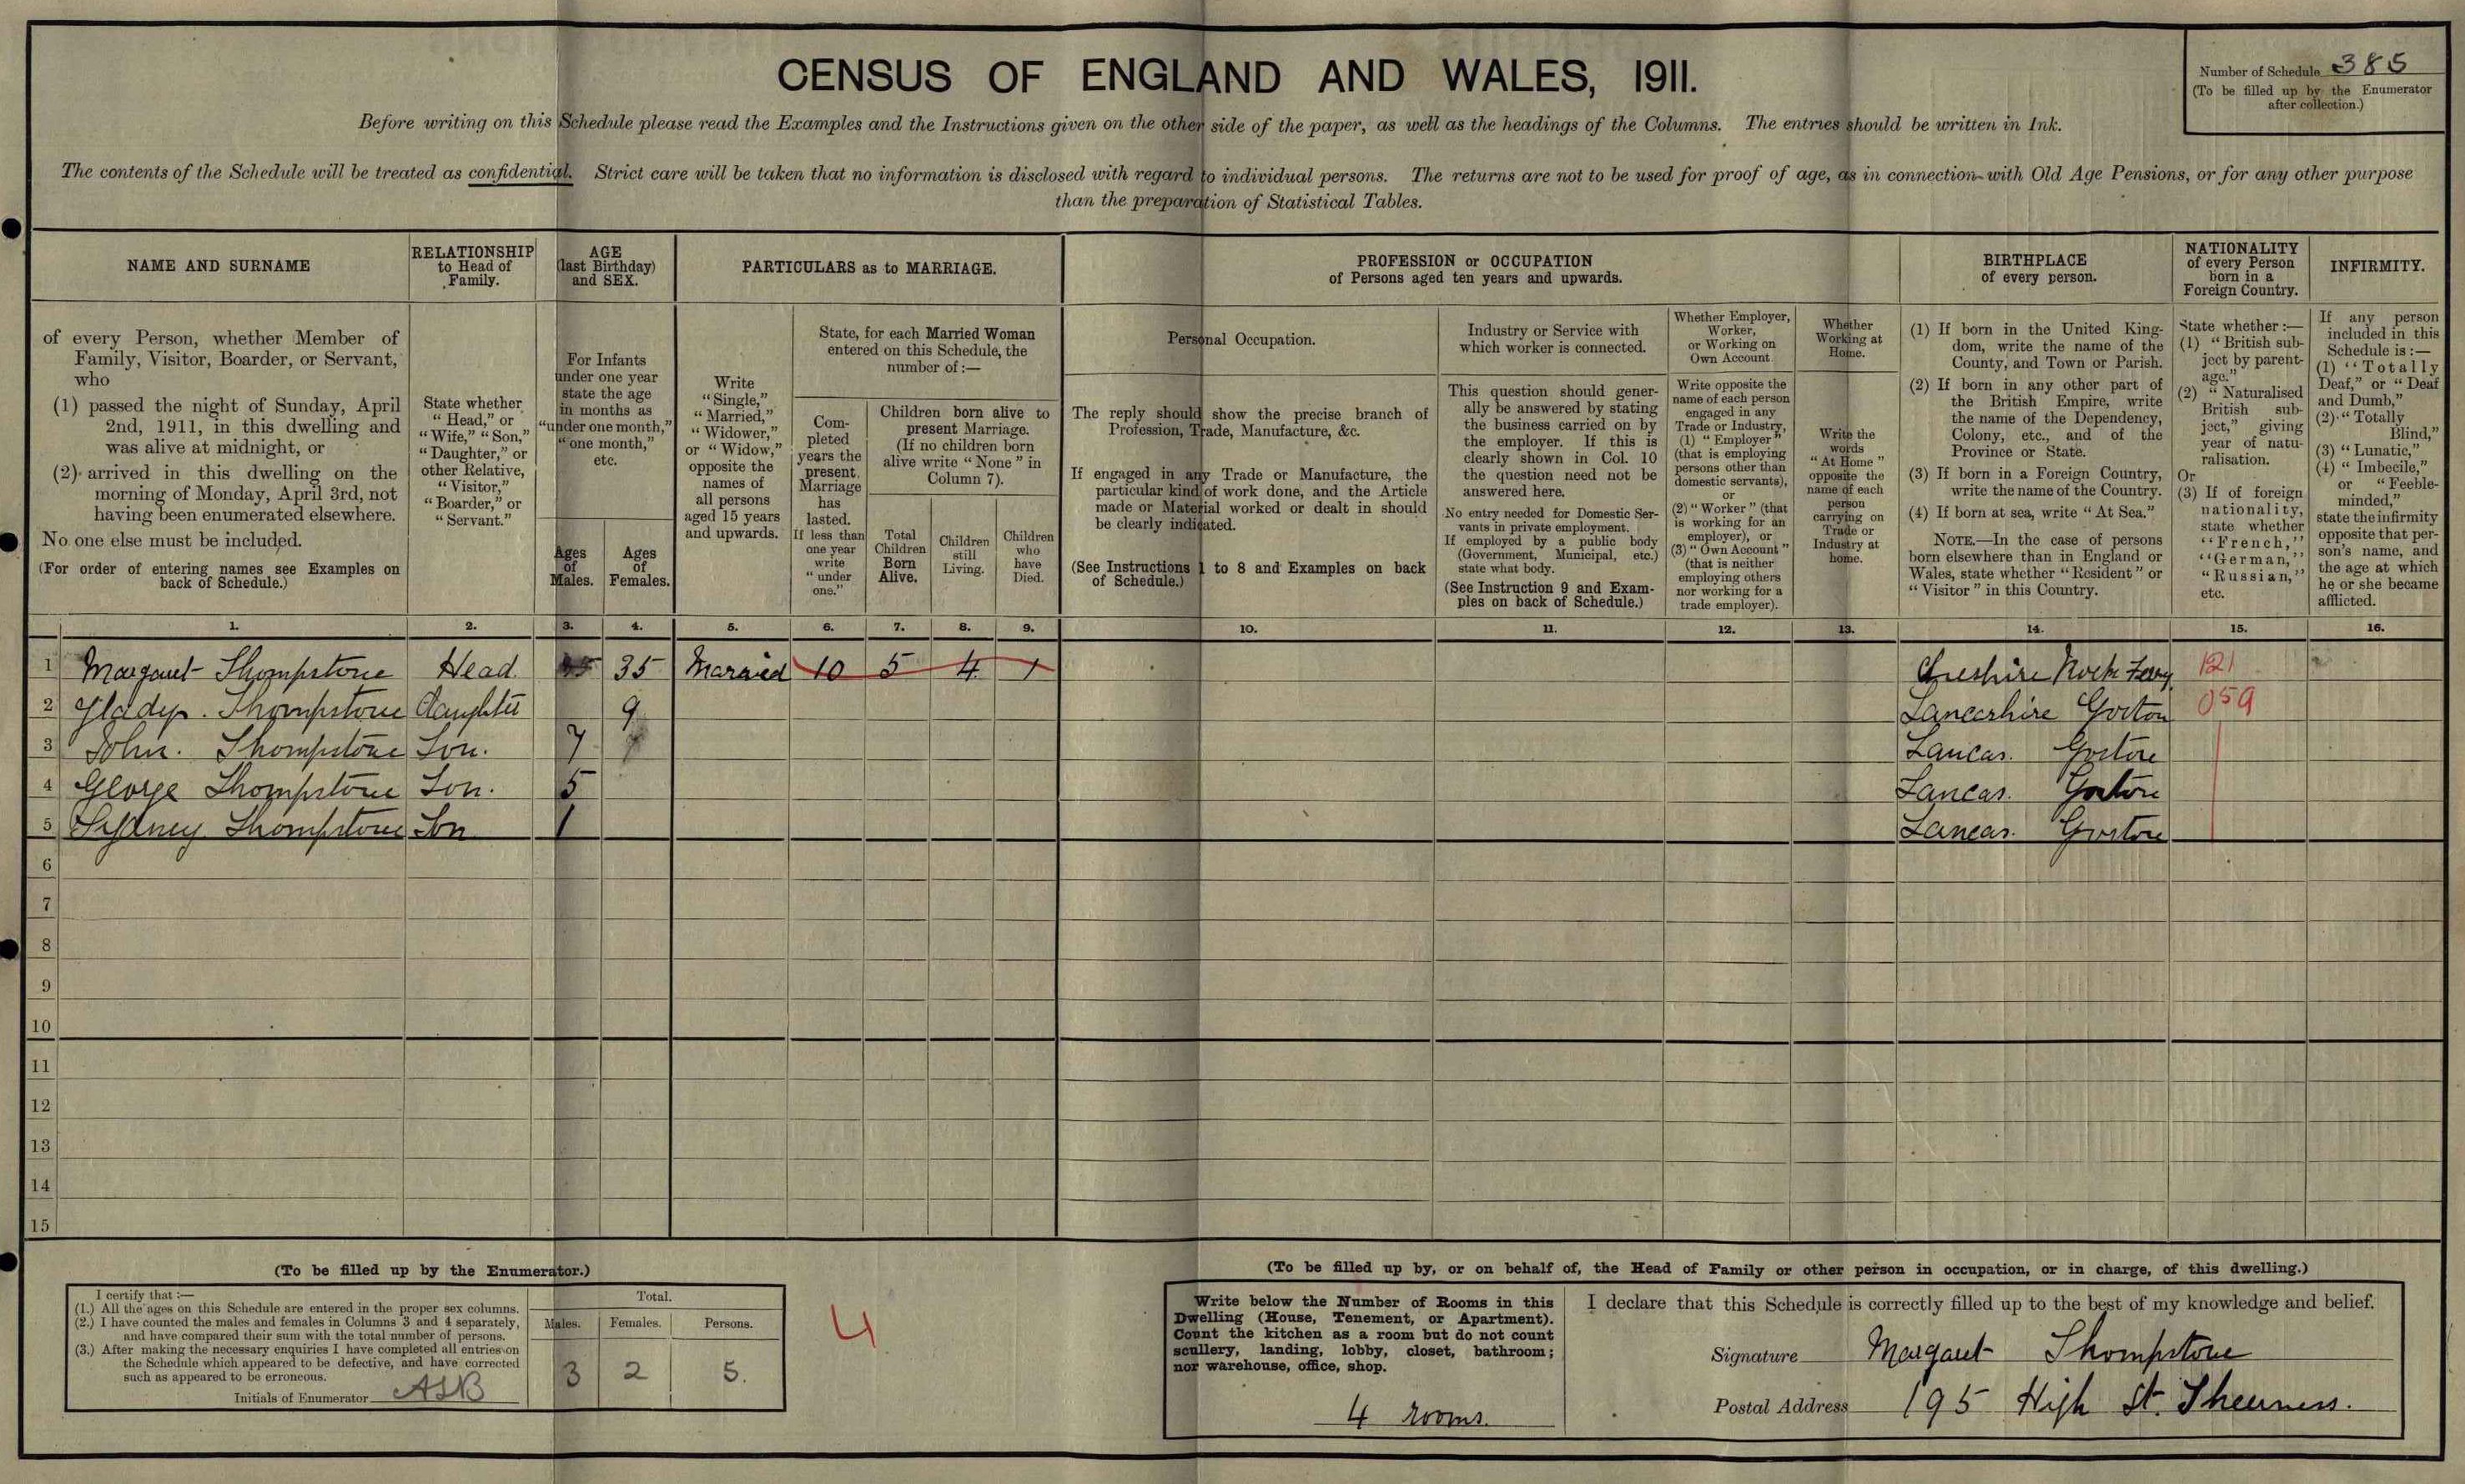 CENSUS OF ENGLAND AND WALES, 1911.
Number of Schedule 385
(To be filled up by the Enumerator
after collection.)
Before writing on this Schedule please read the Examples and the Instructions given on the other side of the paper, as well as the headings of the Columns. The entries should be written in Ink.
The contents of the Schedule will be treated as confidential. Strict care will be taken that no information is disclosed with regard to individual persons. The returns are not to be used for proof of age, as in connection with Old Age Pensions, or for any other purpose
than the preparation of Statistical Tables.
NAME AND SURNAME
of every Person, whether Member of
Family, Visitor, Boarder, or Servant,
who
(1) passed the night of Sunday, April
2nd, 1911, in this dwelling and
was alive at midnight, or
(2) arrived in this dwelling on the
morning of Monday, April 3rd, not
having been enumerated elsewhere.
No one else must be included.
(For order of entering names see Examples on
back of Schedule.)
RELATIONSHIP
to Head of
Family.
State whether
"Head," or
"Wife," "Son,"
"Daughter," or
other Relative,
"Visitor,"
"Boarder," or
"Servant."
AGE
(last Birthday)
and SEX.
For Infants
under one year
state the age
in months as
"under one month,"
"one month,"
etc.
Ages
of
Males.
Ages
of
Females.
PARTICULARS as to MARRIAGE.
Write
"Single,"
"Married,"
"Widower,"
or "Widow,"
opposite the
names of
all persons
aged 15 years
and upwards.
State, for each Married Woman
entered on this Schedule, the
number of:—
Com-
pleted
years the
present
Marriage
has
lasted.
If less than
one year
write
"under
one."
Children born alive to
present Marriage.
(If no children born
alive write "None" in
Column 7).
Total
Children
Born
Alive.
Children
still
Living.
Children
who
have
Died.
PROFESSION or OCCUPATION
of Persons aged ten years and upwards.
Personal Occupation.
The reply should show the precise branch of
Profession, Trade, Manufacture, &c.
If engaged in any Trade or Manufacture, the
particular kind of work done, and the Article
made or Material worked or dealt in should
be clearly indicated.
(See Instructions 1 to 8 and Examples on back
of Schedule.)
Industry or Service with
which worker is connected.
This question should gener-
ally be answered by stating
the business carried on by
the employer. If this is
clearly shown in Col. 10
the question need not be
answered here.
No entry needed for Domestic Ser-
vants in private employment.
If employed by a public body
(Government, Municipal, etc.)
state what body.
(See Instruction 9 and Exam-
ples on back of Schedule.)
Whether Employer,
Worker,
or Working on
Own Account.
Write opposite the
name of each person
engaged in any
Trade or Industry,
(1) "Employer"
(that is employing
persons other than
domestic servants),
or
(2) "Worker" (that
is working for an
employer), or
(3) "Own Account"
(that is neither
employing others
nor working for a
trade employer).
Whether
Working at
Home.
Write the
words
"At Home"
opposite the
name of each
person
carrying on
Trade or
Industry at
home.
BIRTHPLACE
of every person.
(1) If born in the United King-
dom, write the name of the
County, and Town or Parish.
(2) If born in any other part of
the British Empire, write
the name of the Dependency,
Colony, etc., and of the
Province or State.
(3) If born in a Foreign Country,
write the name of the Country.
(4) If born at sea, write "At Sea."
NOTE.—In the case of persons
born elsewhere than in England or
Wales, state whether "Resident" or
"Visitor" in this Country.
NATIONALITY
of every Person
born in a
Foreign Country.
State whether:—
(1) "British sub-
ject by parent-
age."
(2) "Naturalised
British sub-
ject," giving
year of natu-
ralisation.
Or
(3) If of foreign
nationality,
state whether
"French,"
"German,"
"Russian,"
etc.
INFIRMITY.
If any person
included in this
Schedule is:—
(1) "Totally
Deaf," or "Deaf
and Dumb,"
(2) "Totally
Blind,"
(3) "Lunatic,"
(4) "Imbecile,"
or "Feeble-
minded,"
state the infirmity
opposite that per-
son's name, and
the age at which
he or she became
afflicted.
1. 2. 3. 4. 5. 6. 7. 8. 9. 10. 11. 12. 13. 14. 15. 16.
1 Margaret Thompstone Head. 35 Married 10 5 4 1 Cheshire Rock Ferry 121
2 Gladys. Thompstone Daughter 9 Lancashire Gorton 059
3 John. Thompstone Son. 7 Lancas. Gorton
4 George Thompstone Son. 5 Lancas. Gorton
5 Sydney Thompstone Son 1 Lancas. Gorton
6
7
8
9
10
11
12
13
14
15
(To be filled up by the Enumerator.)
I certify that:—
(1.) All the ages on this Schedule are entered in the proper sex columns.
(2.) I have counted the males and females in Columns 3 and 4 separately,
and have compared their sum with the total number of persons.
(3.) After making the necessary enquiries I have completed all entries on
the Schedule which appeared to be defective, and have corrected
such as appeared to be erroneous.
Initials of Enumerator
Total.
Males. Females. Persons.
3 2 5.
4
(To be filled up by, or on behalf of, the Head of Family or other person in occupation, or in charge, of this dwelling.)
Write below the Number of Rooms in this
Dwelling (House, Tenement, or Apartment).
Count the kitchen as a room but do not count
scullery, landing, lobby, closet, bathroom;
nor warehouse, office, shop.
4 rooms.
I declare that this Schedule is correctly filled up to the best of my knowledge and belief.
Signature Margaret Thompstone
Postal Address 195 High St. Sheerness.